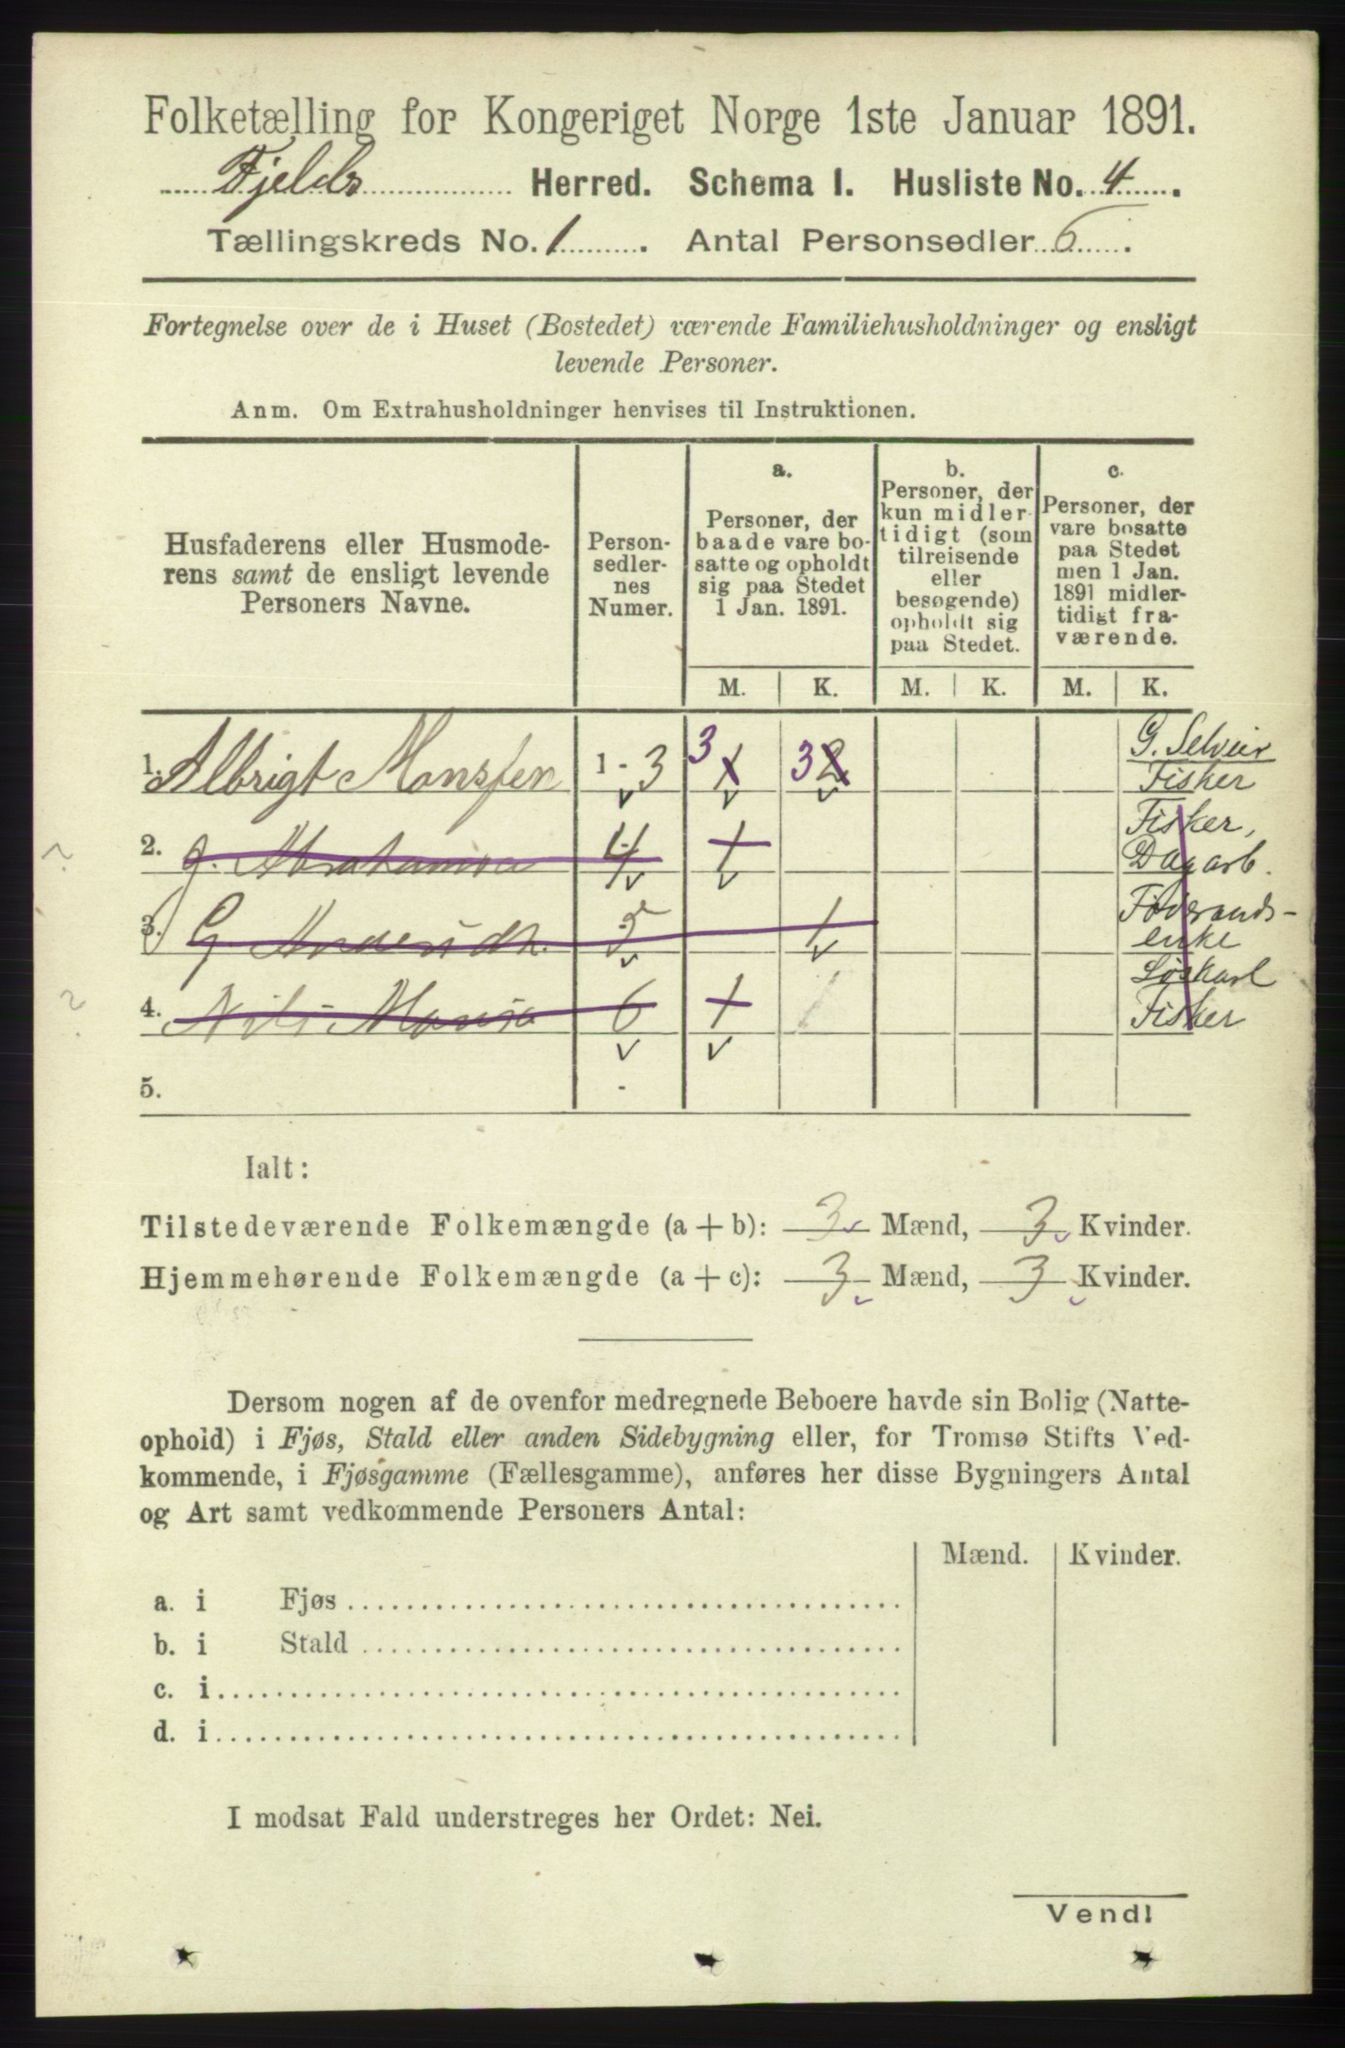 Folketælling for Kongeriget Norge 1ste Januar 1891.
Fjelds Herred. Schema I. Husliste No. 4.
Tællingskreds No. 1. Antal Personsedler 6.
Fortegnelse over de i Huset (Bostedet) værende Familiehusholdninger og ensligt
levende Personer.
Anm. Om Extrahusholdninger henvises til Instruktionen.
Husfaderens eller Husmode-
rens samt de ensligt levende
Personers Navne.
Person-
sedler-
nes
Numer.
a.
Personer, der
baade vare bo-
satte og opholdt
sig paa Stedet
1 Jan. 1891.
b.
Personer, der
kun midler-
tidigt (som
tilreisende
eller
besøgende)
opholdt sig
paa Stedet.
c.
Personer, der
vare bosatte
paa Stedet
men 1 Jan.
1891 midler-
tidigt fra-
værende.
M. K. M. K. M. K.
1. Albrigt Monssen 1-3 3 1 3 2 G. Selveier
Fisker
2. J. Abrahamsen 4 1 Fisker,
Dagarb.
3. G 5 1 Føderaads-
enke
4. Nils Monsen 6 1 Løskarl
Fisker
5. -
Ialt:
Tilstedeværende Folkemængde (a + b): 3 Mænd, 3 Kvinder.
Hjemmehørende Folkemængde (a + c): 3 Mænd, 3 Kvinder.
Dersom nogen af de ovenfor medregnede Beboere havde sin Bolig (Natte-
ophold) i Fjøs, Stald eller anden Sidebygning eller, for Tromsø Stifts Ved-
kommende, i Fjøsgamme (Fællesgamme), anføres her disse Bygningers Antal
og Art samt vedkommende Personers Antal:
Mænd. Kvinder.
a. i Fjøs
b. i Stald
c. i
d. i
I modsat Fald understreges her Ordet: Nei.
Vend!